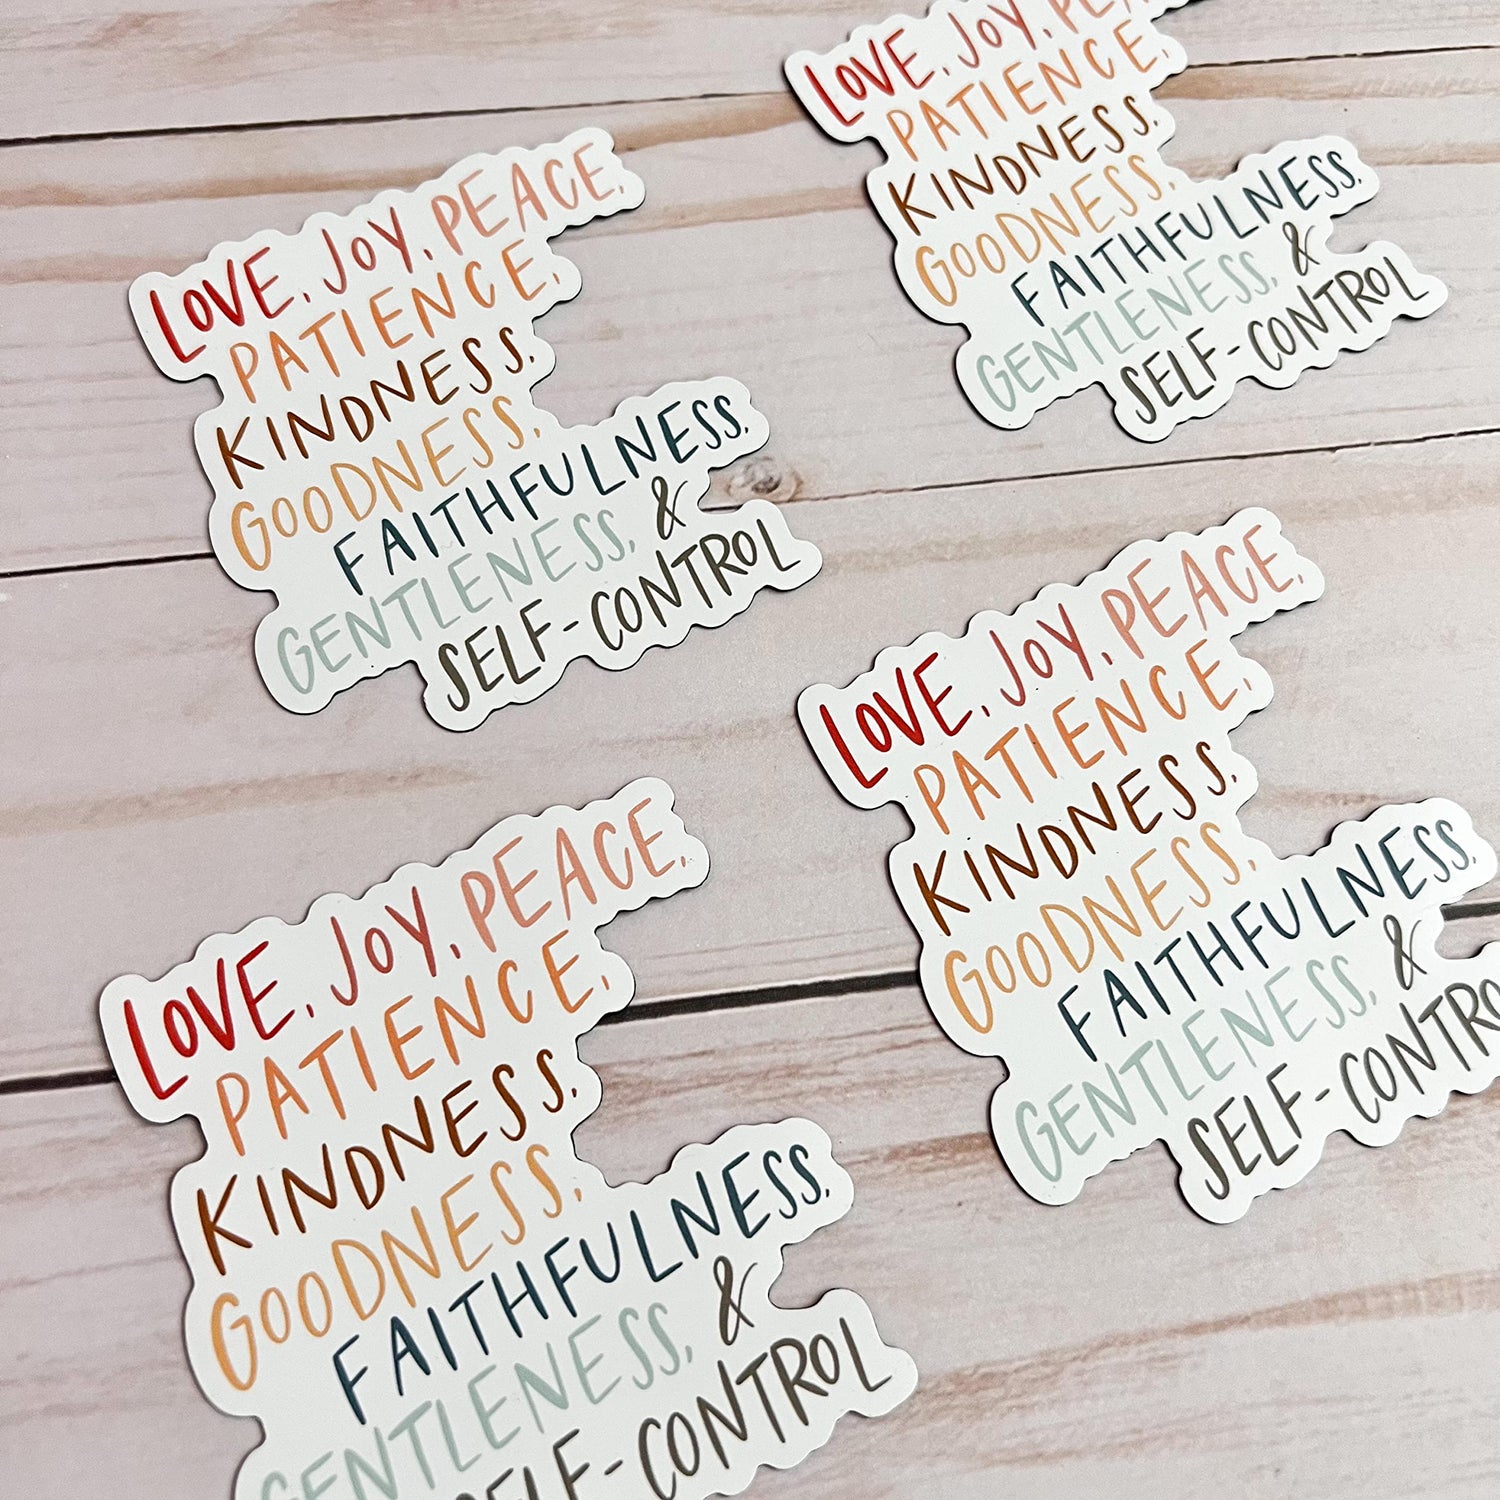 LOVE, JOY, PEACE,
PATIENCE,
KINDNESS,
GOODNESS,
FAITHFULNESS,
GENTLENESS, &
SELF-CONTROL
LOVE, JOY, PEA
PATIENCE,
KINDNESS,
GOODNESS,
FAITHFULNESS,
GENTLENESS, &
SELF-CONTROL
LOVE, JOY, PEACE,
PATIENCE,
KINDNESS,
GOODNESS,
FAITHFULNESS,
GENTLENESS, &
SELF-CONTROL
LOVE, JOY, PEACE,
PATIENCE,
KINDNESS,
GOODNESS,
FAITHFULNESS,
GENTLENESS, &
SELF-CONTRO